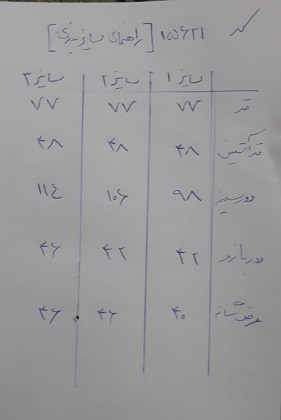 کد ۱۵۶۲۱ [راهنمای سایزبندی]
سایز ۱ سایز ۲ سایز ۳
قد ۷۷ ۷۷ ۷۷
قد آستین ۴۸ ۴۸ ۴۸
دورسینه ۹۸ ۱۰۶ ۱۱۴
دور بازو ۴۲ ۴۲ ۴۶
عرض شانه ۴۰ ۴۶ ۴۶